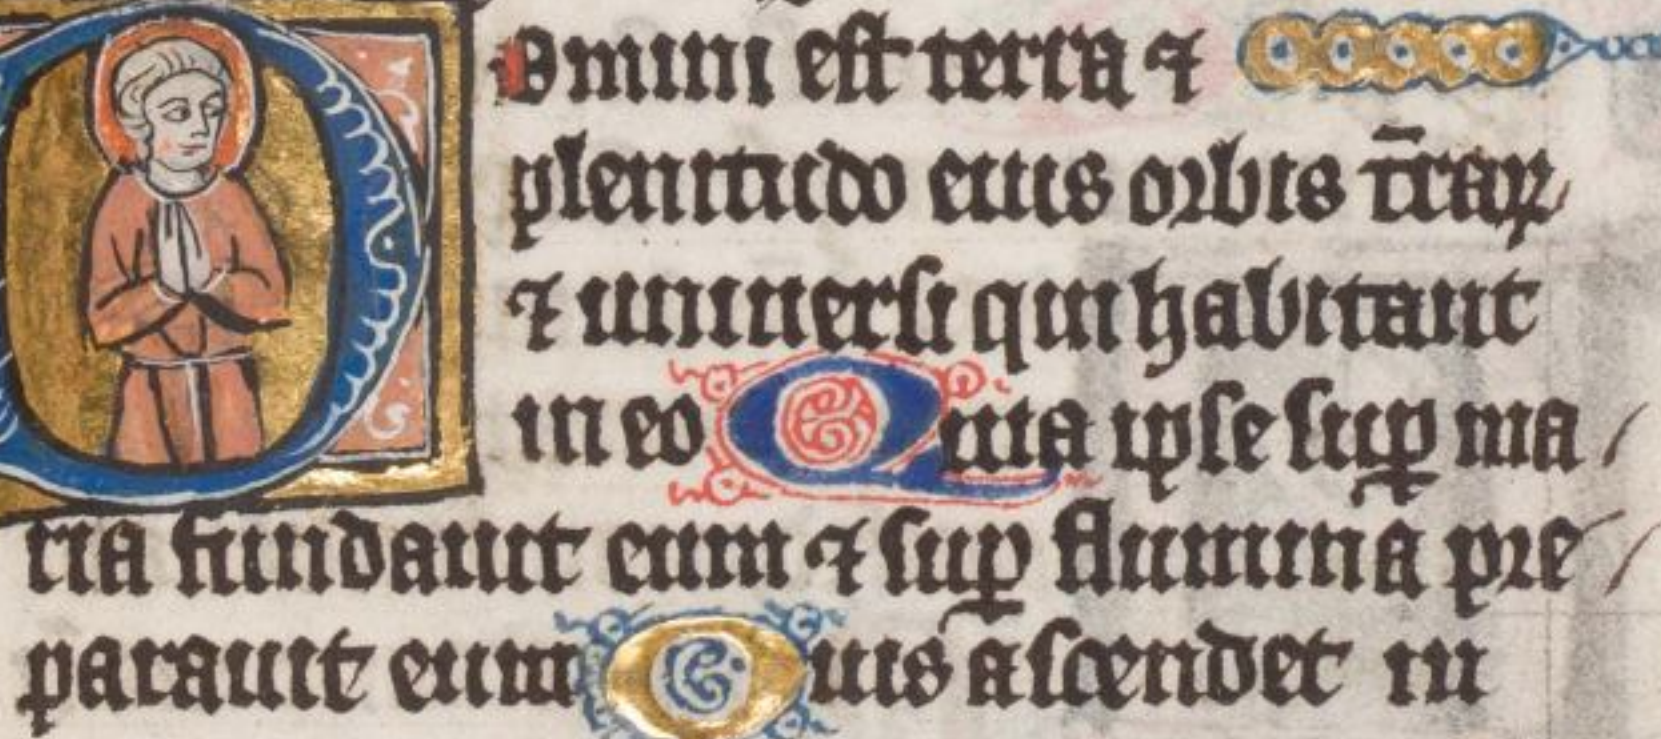 Domini est terra ⁊
plenitudo eius orbis t̄raꝝ
⁊ uniuersi qui habitant
in eo Quia ipse suꝑ ma
ria fundauit eum ⁊ suꝑ flumina pre
parauit eum Quis ascendet in